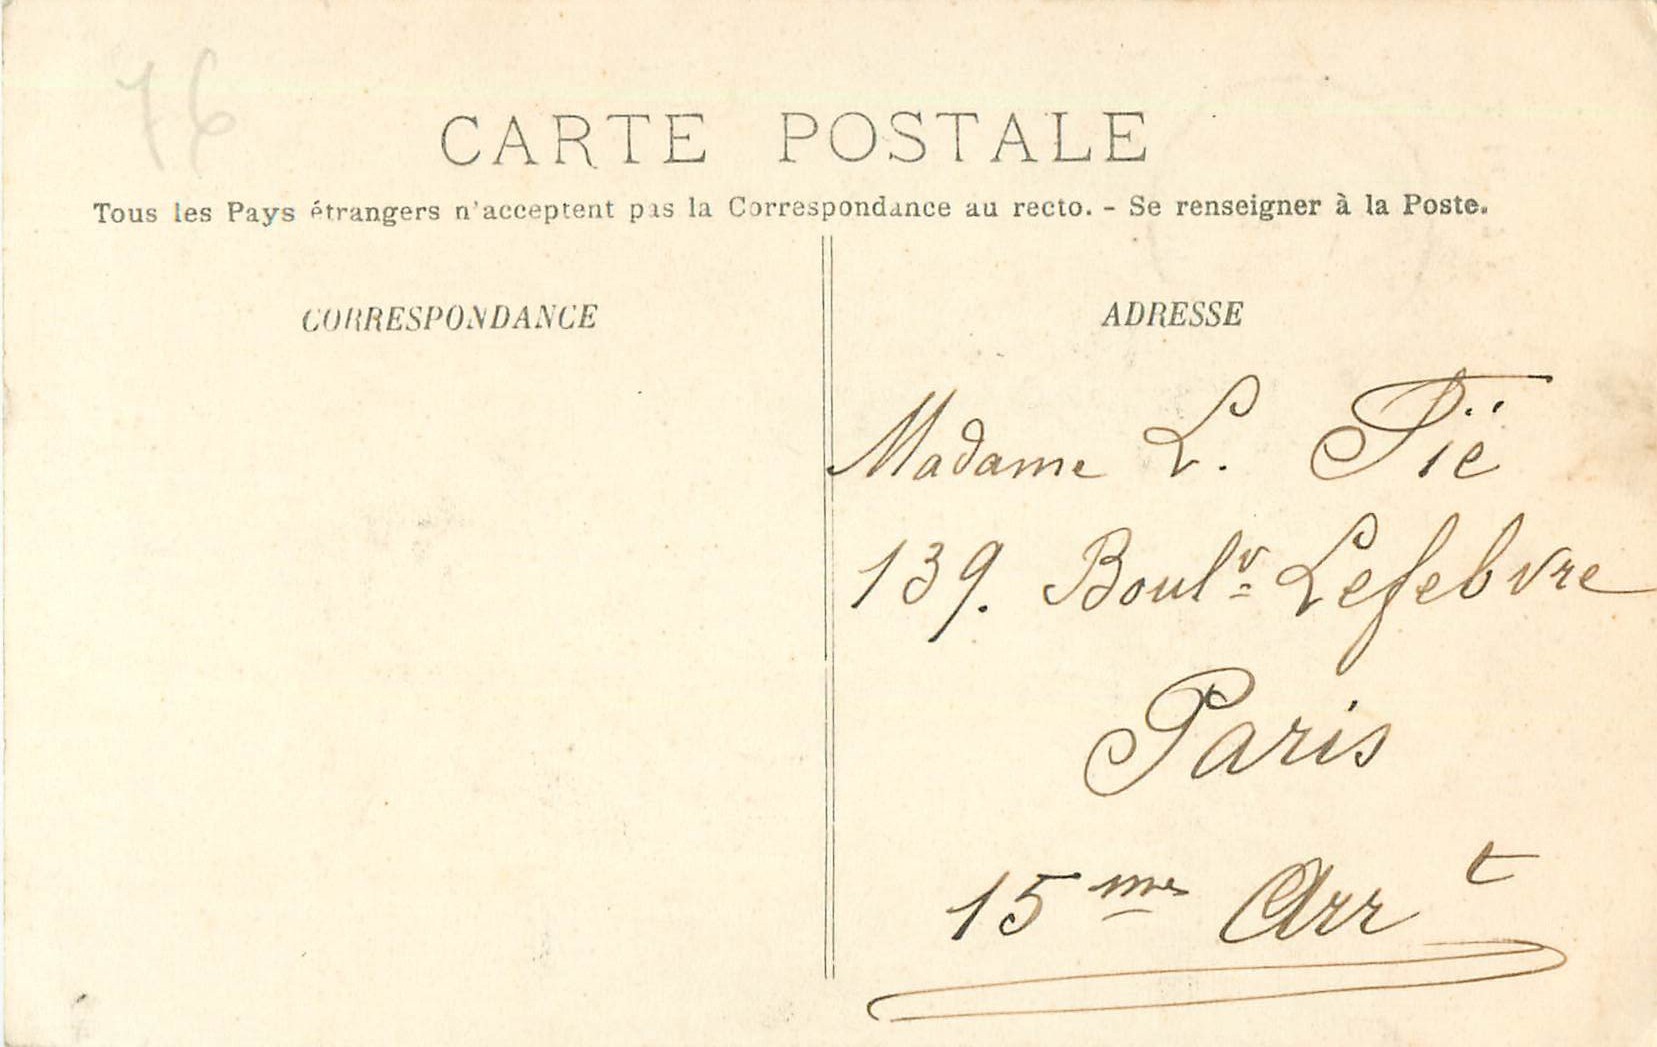 76
CARTE POSTALE
Tous les Pays étrangers n'acceptent pas la Correspondance au recto. - Se renseigner à la Poste.
CORRESPONDANCE
ADRESSE
Madame L. Fïé
139. Boulv Lefebvre
Paris
15me Arrt